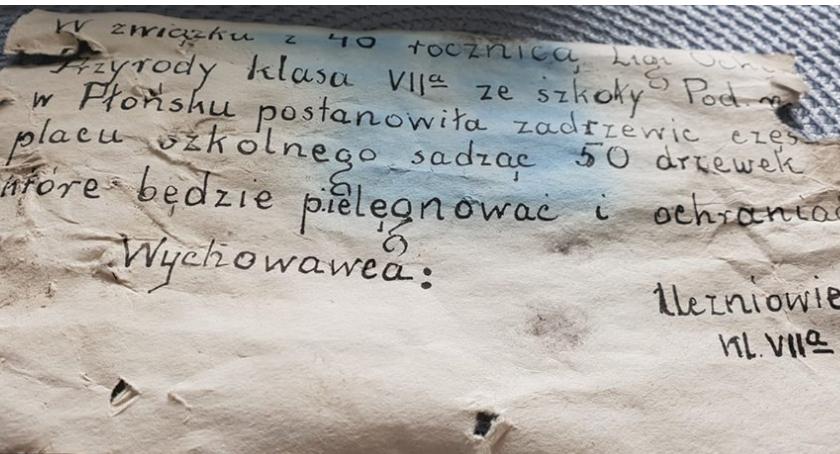 W związku z 40 rocznicą Ligi Och
Przyrody klasa VIIa ze szkoły Pod. n
w Płońsku postanowiła zadrzewić częś
placu szkolnego sadząc 50 drzewek
które będzie pielęgnować i ochraniać
Wychowawca:
Uczniowie
Kl. VIIa